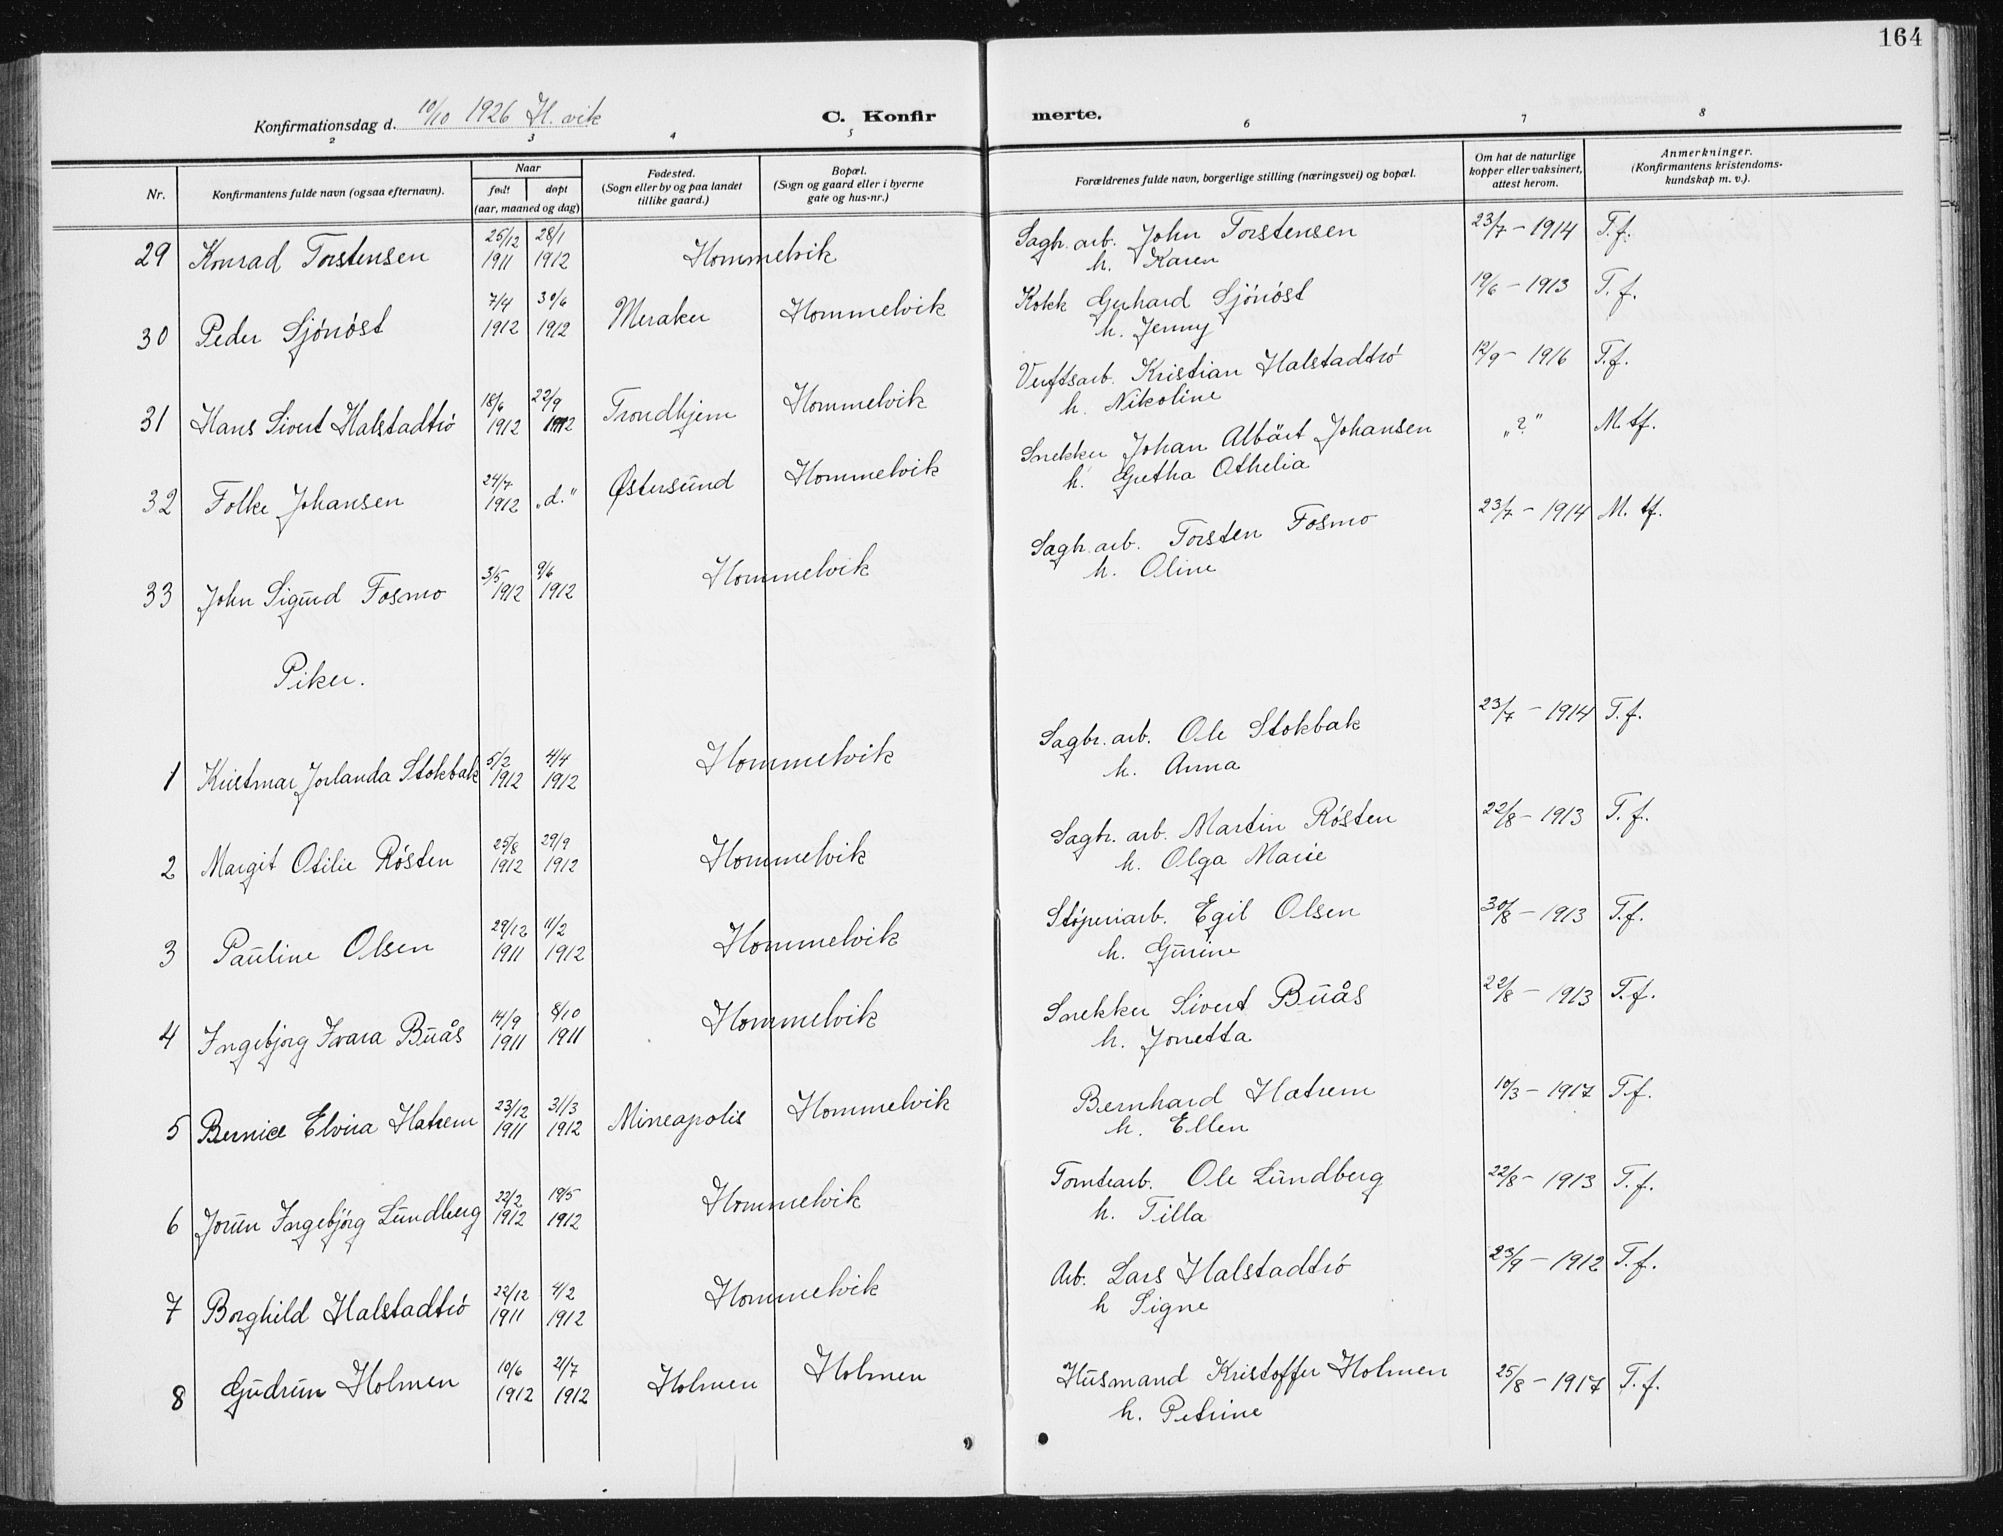 164
Konfirmationsdag d. 10/10 1926 H.vik
C. Konfirmerte.
2 3 4 5 6 7 8
Nr. Konfirmantens fulde navn (ogsaa efternavn). Naar født døpt (aar, maaned og dag) Fødested. (Sogn eller by og paa landet tillike gaard.) Bopæl. (Sogn og gaard eller i byerne gate og hus-nr.) Forældrenes fulde navn, borgerlige stilling (næringsvei) og bopæl. Om hat de naturlige kopper eller vaksinert, attest herom. Anmerkninger. (Konfirmantens kristendoms-kundskap m. v.).
29 Konrad Torstensen 26/12 1911 28/1 1912 Hommelvik Sagbr. arb. John Torstensen h. Karen 23/7 - 1914 T.f.
30 Peder Sjönöst 7/4 1912 30/6 1912 Meraker Hommelvik Kokk Gerhard Sjönöst h. Jenny 19/6 - 1913 T.f.
31 Hans Sivert Halstadtrö 18/6 1912 22/9 1912 Trondhjem Hommelvik Verftsarb. Kristian Halstadtrö h. Nikoline 12/9 - 1916 T.f.
32 Folke Johansen 24/7 1912 „d." Østersund Hommelvik Snekker Johan Albärt Johansen h. Gretha Othelia „?" M.tf.
33 John Sigurd Fosmo 3/5 1912 9/6 1912 Hommelvik Sagbr. arb. Torsten Fosmo h. Oline 23/7 - 1914 M.tf.
Piker.
1 Kristmar Jorlanda Stokbak 5/2 1912 4/4 1912 Hommelvik Sagbr. arb. Ole Stokbak h. Anna 23/7 - 1914 T.f.
2 Margit Otilie Rösten 25/8 1912 29/9 1912 Hommelvik Sagbr. arb. Martin Rösten h. Olga Marie 22/8 - 1913 T.f.
3 Pauline Olsen 29/12 1911 11/2 1912 Hommelvik Støperiarb. Egil Olsen h. Gurine 30/8 - 1913 T.f.
4 Ingebjørg Ivara Buås 14/9 1911 8/10 1911 Hommelvik Snekker Sivert Buås h. Jonetta 22/8 - 1913 T.f.
5 Bernice Elvira Hatrem 23/12 1911 31/3 1912 Mineapolis Hommelvik Bernhard Hatrem h. Ellen 10/3 - 1917 T.f.
6 Jorun Ingebjørg Lundberg 22/2 1912 19/5 1912 Hommelvik Tomtearb. Ole Lundberg h. Tilla 22/8 - 1913 T.f.
7 Borghild Halstadtrö 22/12 1911 4/2 1912 Hommelvik Arb. Lars Halstadtrö h Signe 23/9 - 1912 T.f.
8 Gudrun Holmen 10/6 1912 21/7 1912 Holmen Holmen Husmand Kristoffer Holmen h. Petrine 25/8 - 1917 T.f.